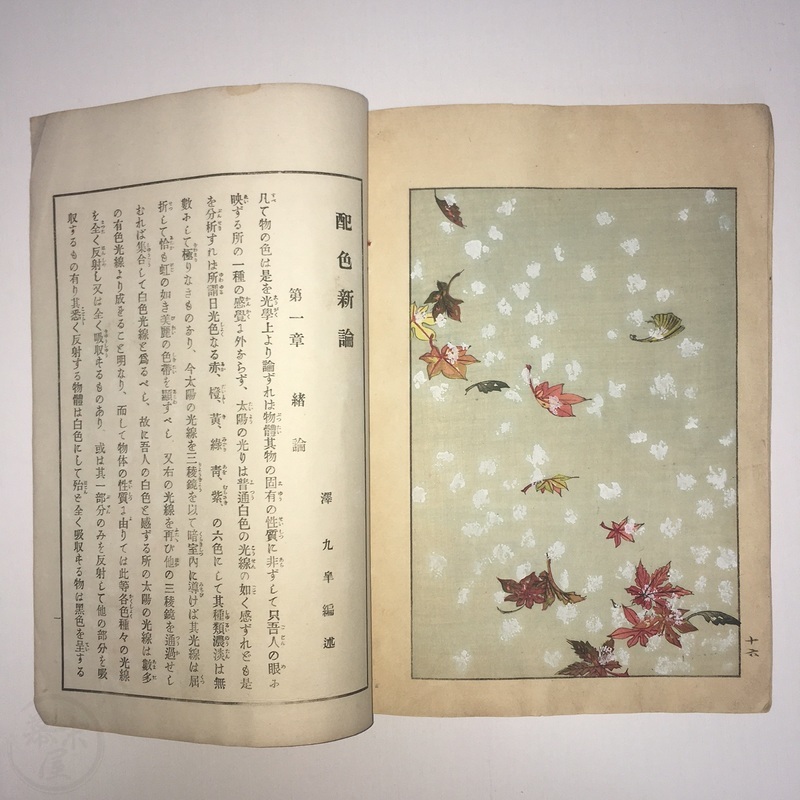 配色新論
澤九皐編述
第一章　緒論
凡て物の色は是を光學上より論ずれは物體其物の固有の性質に非ずして只吾人の眼に
映ずる所の一種の感覺に外ならず、太陽の光りは普通白色の光線の如く感ずれども是
を分析すれは所謂日光色なる赤、橙、黃、綠、靑、紫、の六色にして其種類濃淡は無
數にして極りなきものあり、今太陽の光線を三稜鏡を以て暗室內に導けば其光線は屈
折して恰も虹の如き美麗の色帶を顯すべし又右の光線を再び他の三稜鏡を通過せし
むれば集合して白色光線と爲るべし、故に吾人の白色と感ずる所の太陽の光線は數多
の有色光線より成をること明なり、而して物体の性質に由りては此等各色種々の光線
を全く反射し又は全く吸取するものあり、或は其一部分のみを反射して他の部分を吸
収するもの有り其悉く反射する物體は白色にして殆と全く吸取する物は黑色を呈する
一